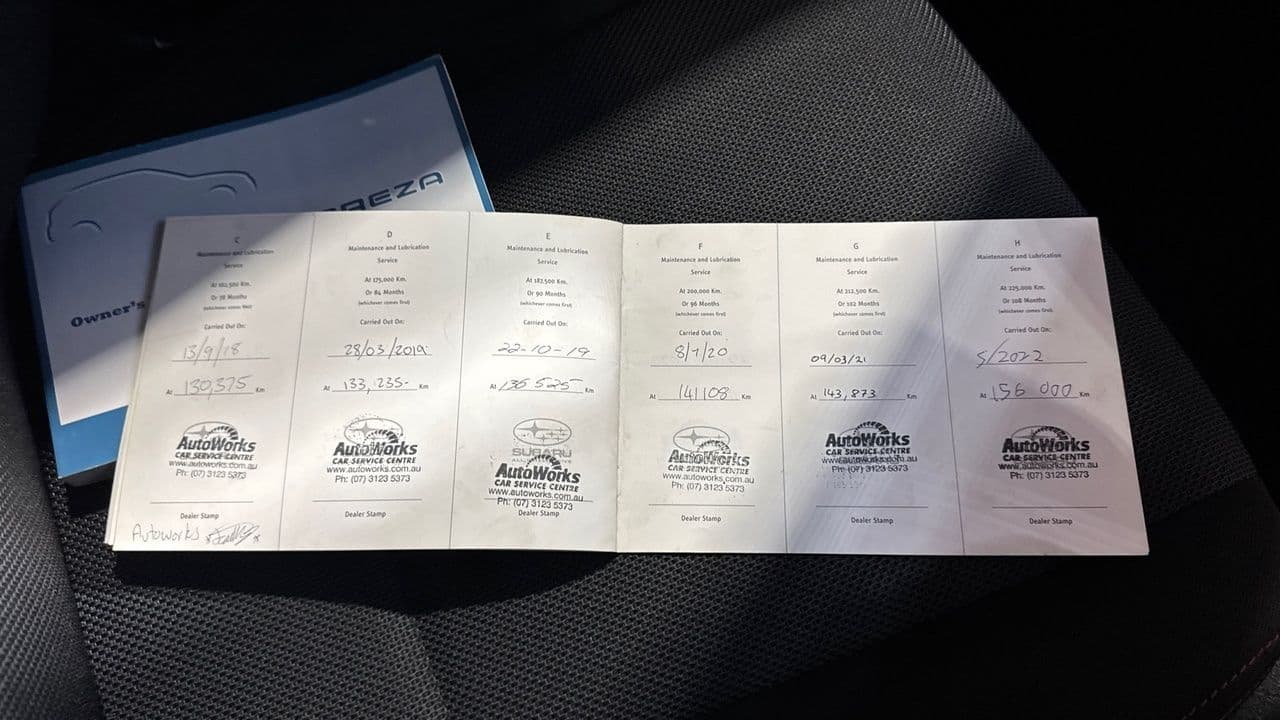 REZA
Owner's
C
Maintenance and Lubrication
Service
At 162,500 Km.
Or 78 Months
(whichever comes first)
Carried Out On:
13/9/18
At 130,375 Km
AutoWorks
CAR SERVICE CENTRE
www.autoworks.com.au
Ph: (07) 3123 5373
Autoworks
D
Maintenance and Lubrication
Service
At 175,000 Km.
Or 84 Months
(whichever comes first)
Carried Out On:
28/03/2019
At 133,235- Km
AutoWorks
CAR SERVICE CENTRE
www.autoworks.com.au
Ph: (07) 3123 5373
Dealer Stamp
E
Maintenance and Lubrication
Service
At 187,500 Km.
Or 90 Months
(whichever comes first)
Carried Out On:
22-10-19
At 136 525 Km
SUBARU
AutoWorks
CAR SERVICE CENTRE
www.autoworks.com.au
Ph: (07) 3123 5373
Dealer Stamp
F
Maintenance and Lubrication
Service
At 200,000 Km.
Or 96 Months
(whichever comes first)
Carried Out On:
8/7/20
At 141108 Km
AutoWorks
CAR SERVICE CENTRE
www.autoworks.com.au
Ph: (07) 3123 5373
Dealer Stamp
G
Maintenance and Lubrication
Service
At 212,500 Km.
Or 102 Months
(whichever comes first)
Carried Out On:
09/03/21
At 143,873 Km
AutoWorks
CAR SERVICE CENTRE
www.autoworks.com.au
Ph: (07) 3123 5373
Dealer Stamp
H
Maintenance and Lubrication
Service
At 225,000 Km.
Or 108 Months
(whichever comes first)
Carried Out On:
5/2022
At 156 000 Km
AutoWorks
CAR SERVICE CENTRE
www.autoworks.com.au
Ph: (07) 3123 5373
Dealer Stamp